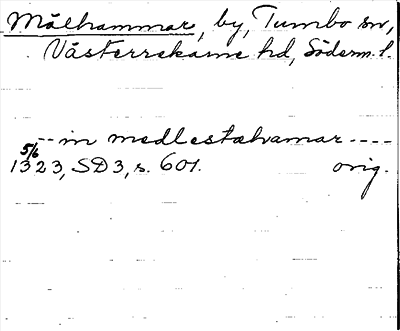 Målhammar, by, Tumbo sn,
Västerrekarne hd, Söderm. l.
-- in medlestahamar ----
5/6
1323, SD 3, s. 601. orig.